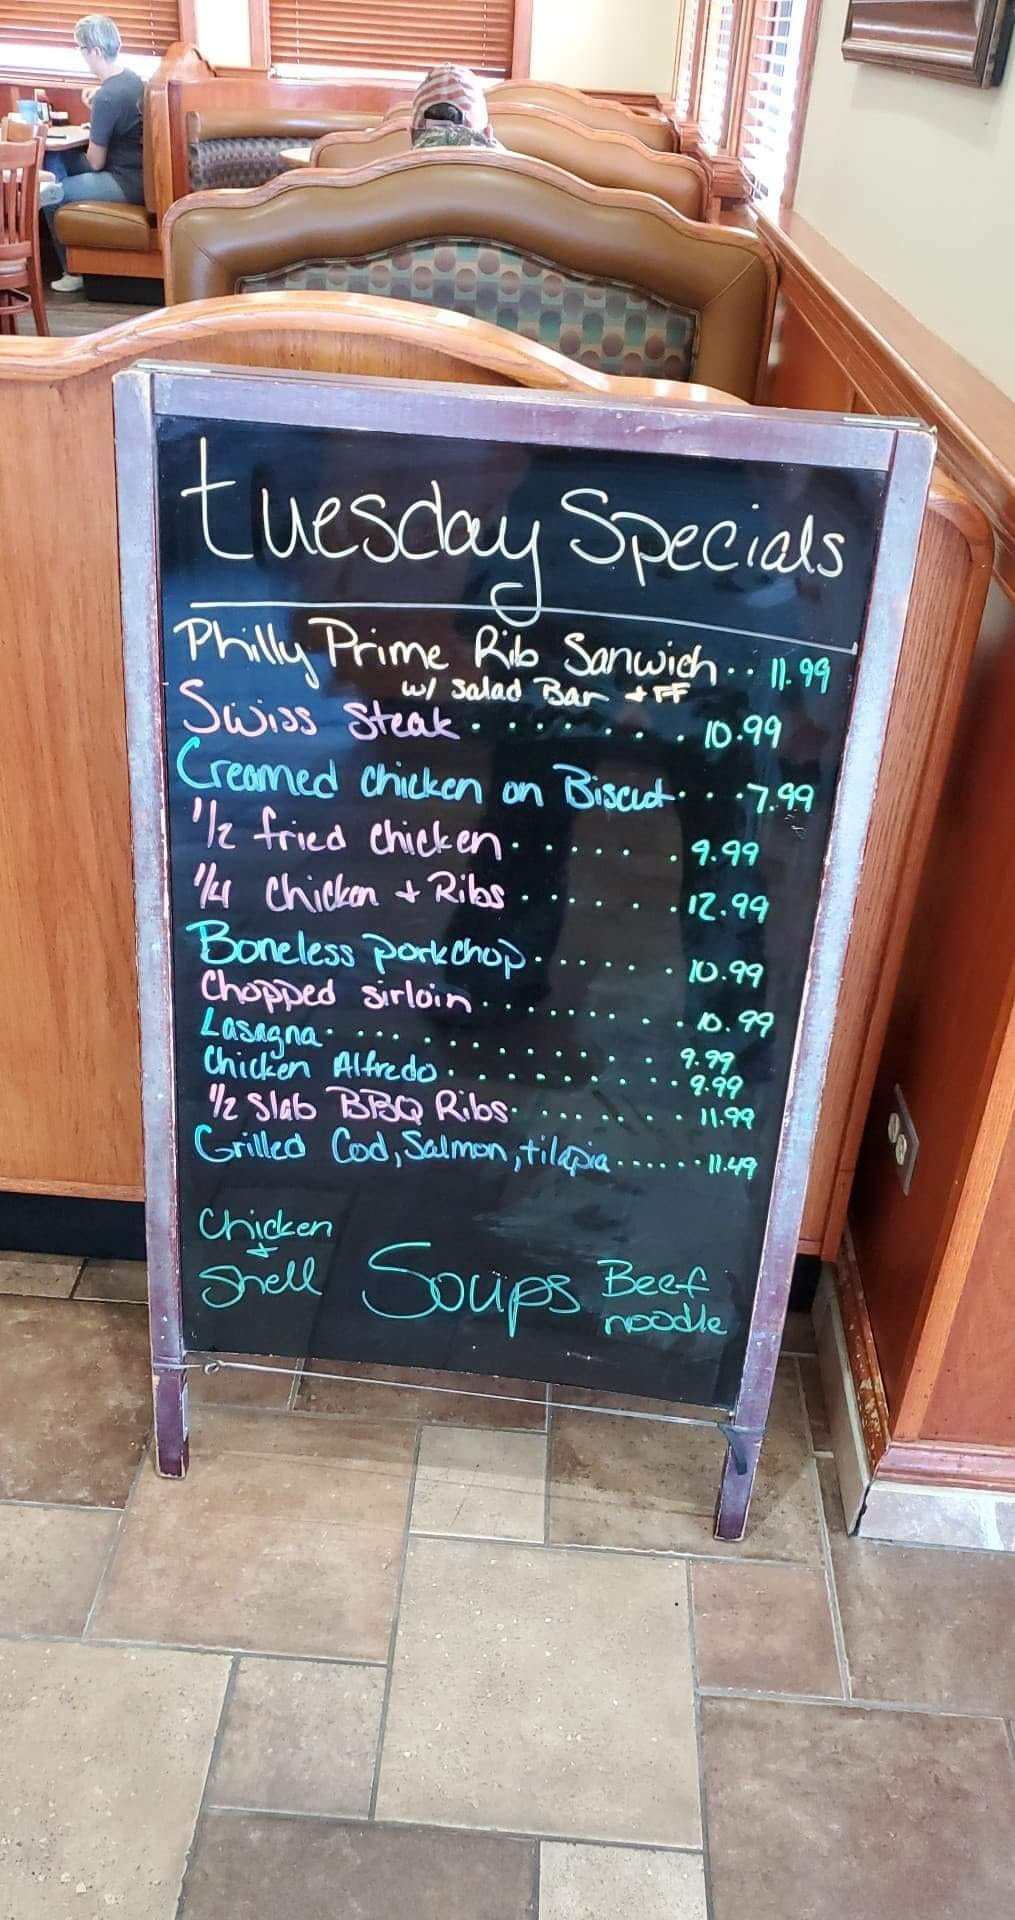 tuesday Specials
Philly Prime Rib Sanwich.. 11.99
w/ Salad Bar + FF
Swiss Steak........10.99
Creamed chicken on Biscut...7.99
1/2 fried chicken.......9.99
1/4 Chicken + Ribs.......12.99
Boneless porkchop.......10.99
Chopped sirloin.........10.99
Lasagna.............9.99
Chicken Alfredo.........9.99
1/2 Slab BBQ Ribs........11.99
Grilled Cod, Salmon, tilapia......11.49
Chicken
+
Shell
Soups
Beef
noodle